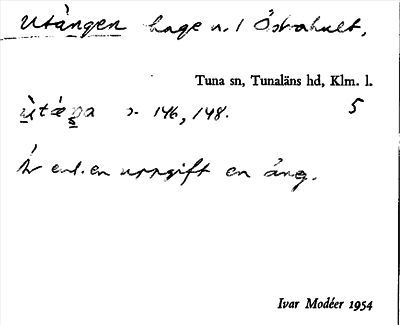 Utången hage n. 1 Östrahult.
Tuna sn, Tunaläns hd, Klm. l.
146, 148. 5
Är enl. en uppgift en äng.
Ivar Modéer 1954